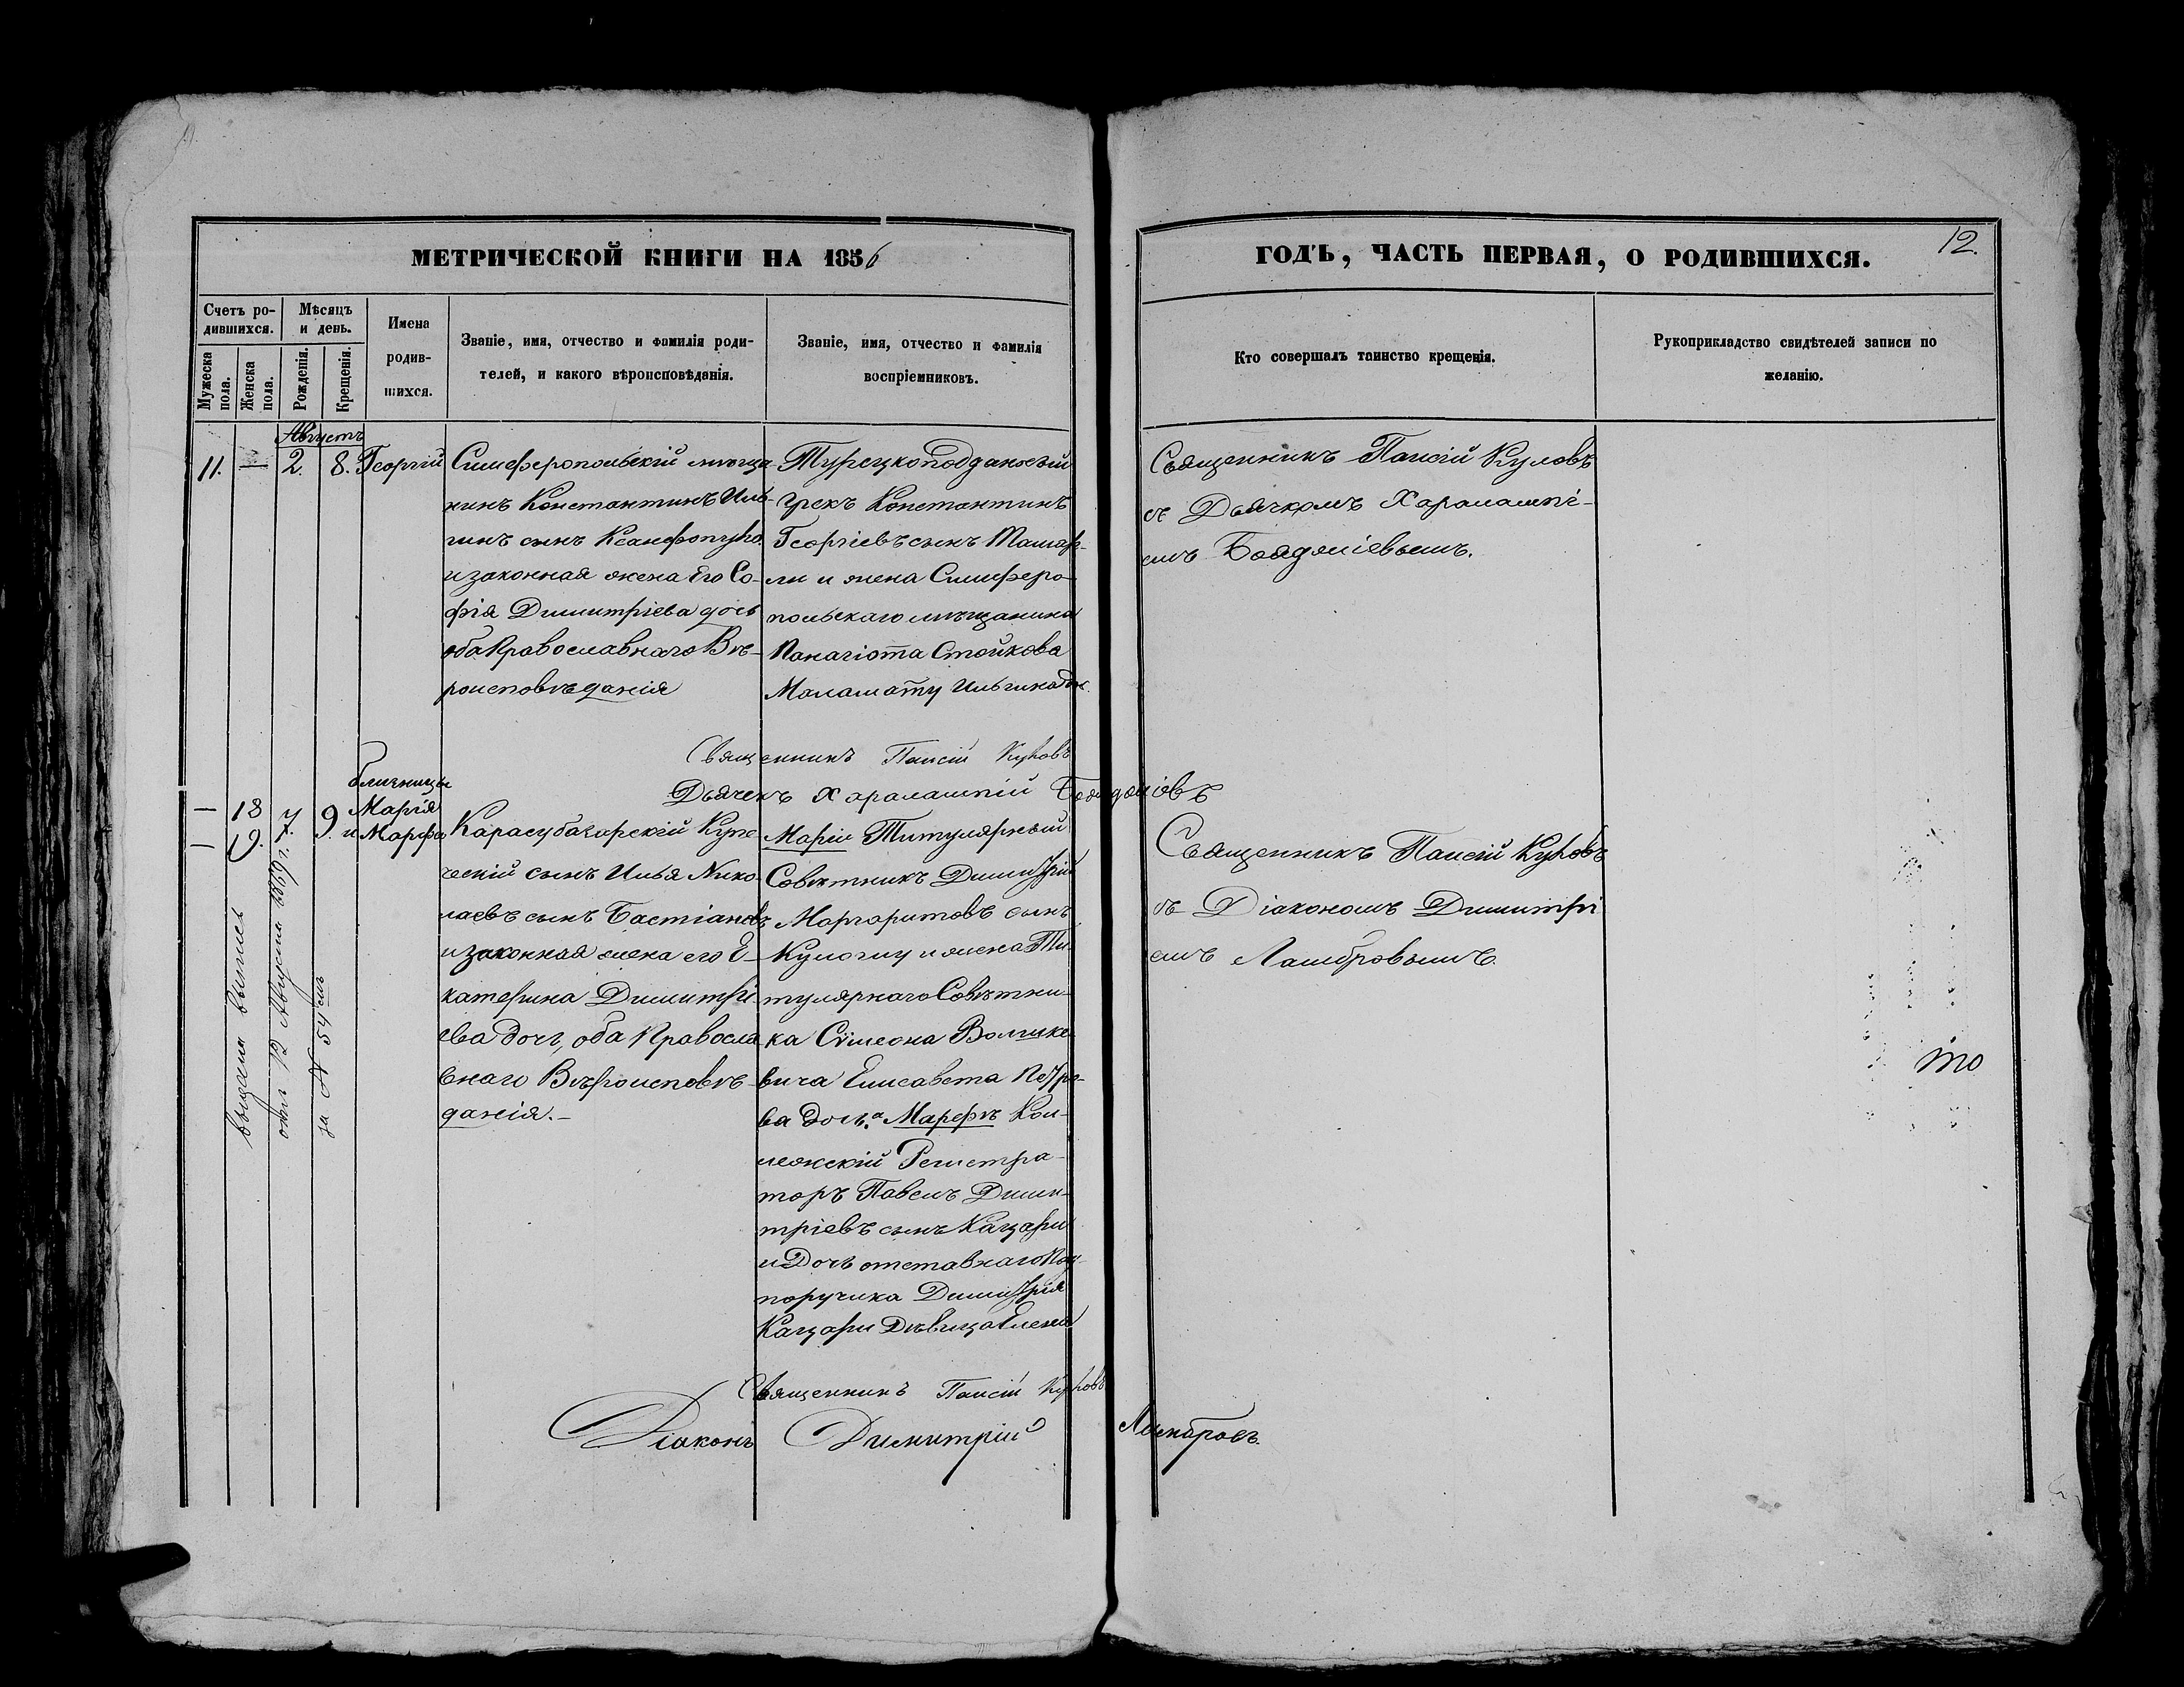 МЕТРИЧЕСКОЙ КНИГИ НА 1856
ГОДЪ, ЧАСТЬ ПЕРВАЯ, О РОДИВШИХСЯ.
12.
Счетъ ро-
дившихся.
Мужеска пола.
Женска пола.
Мѣсяцъ
и день.
Рожденія.
Крещенія.
Имена
родив-
шихся.
Званіе, имя, отчество и фамилія роди-
телей, и какого вѣроисповѣданія.
Званіе, имя, отчество и фамилія
воспріемниковъ.
Кто совершалъ таинство крещенія.
Рукоприкладство свидѣтелей записи по
желанію.
Августъ
11. — 2. 8. Георгій
Симферопольскій мѣща-
нинъ Константинъ Иль-
инъ сынъ
и законная жена Его Со-
фія Димитріева дочь
оба Православнаго Вѣ-
роисповѣданія
Турецкоподданный
Грекъ Константинъ
Георгіевъ сынъ
ли и жена Симферо-
польскаго мѣщанина
Панагіота Стойкова
Маламату Ильина доч.
Священникъ Паисій Куловъ
съ Дьячкомъ Харалампі-
емъ Бояджіевымъ.
Священникъ Паисій Куловъ
Дьячекъ Харалампій Бояджіовъ
близницы
— 18 7. 9. Марія
— 19. 7. и Марфа
Карасубазарскій Купе-
ческій сынъ Илья Нико-
лаевъ сынъ Бастіановъ
и законная жена его Е-
катерина Димитрі-
ева дочь, оба Правосла-
внаго Вѣроисповѣ-
данія.—
Маріи Титулярный
Совѣтникъ Димитрій
Маргаритовъ сынъ
и жена Ти-
тулярнаго Совѣтни-
ка Сѵмеона
вича Елисавета Петро-
ва дочь, а Марфѣ Кол-
лежскій Регистра-
торъ Павелъ Дими-
тріевъ сынъ Кацари
и Дочь отставнаго Под-
поручика Димитрія
Кацари Дѣвица Елена
Священникъ Паисій Куловъ
съ Діакономъ Димитрі
емъ Ламбровымъ.
выдана выпись
12 Августа 1869 г.
за № 54 емъ
то
Священникъ Паисій Куловъ
Діаконъ Димитрій Ламбровъ.